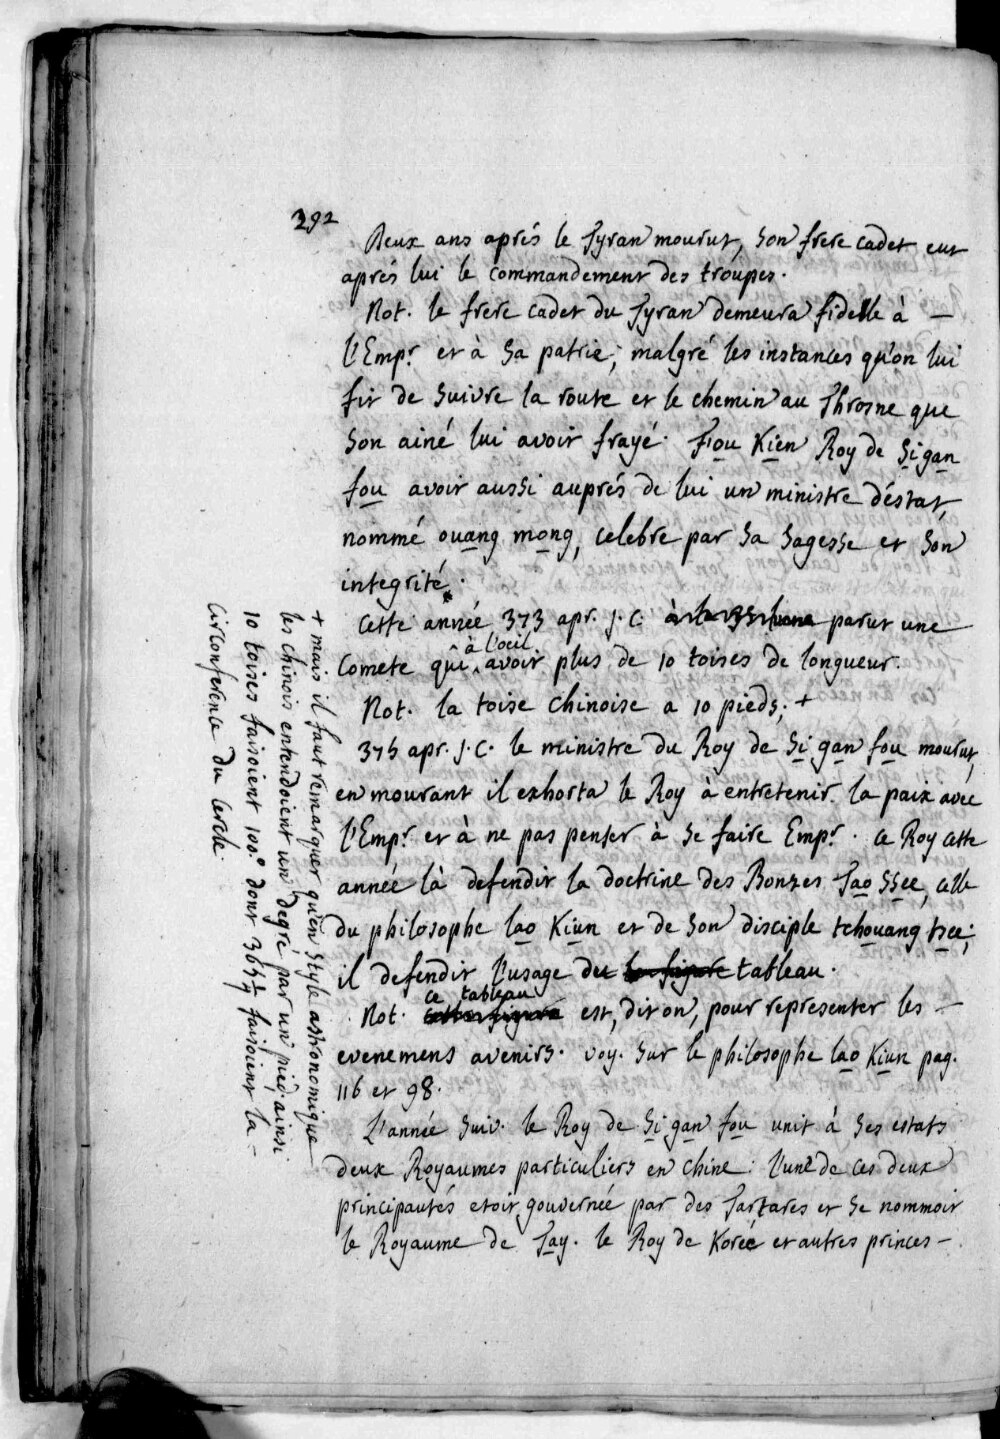 292
Deux ans aprés le Tyran mourut, son frere cadet eut
aprés lui le commandement des troupes.
Not. le frere cadet du Tyran demeura fidelle à –
l'Empr. et à sa patrie; malgré les instances qu'on lui
fit de suivre la route et le chemin au Throsne que
son ainé lui avoit frayé. Fou Kien Roy de Si gan
fou avoit aussi auprés de lui un ministre d'éstat,
nommé ouang mong, celebre par sa sagesse et son
integrité.
Cette année 373 apr. J.C. parut une
à l'oeil
Comete qui avoit plus de 10 toises de longueur.
Not. la toise chinoise a 10 pieds; +
375 apr. J.C. le ministre du Roy de Si gan fou mourut,
en mourant il exhorta le Roy à entretenir la paix avec
l'Empr. et à ne pas penser à se faire Empr. ce Roy cette
année là defendit la doctrine des Bonzes Tao ssee, celle
du philosophe lao Kiun et de son disciple tchouang tsee;
il defendit l'usage du la figure tableau.
ce tableau
Not. cette figure est, dit on, pour representer les –
evenemens avenirs. voy. sur le philosophe lao Kiun pag.
116 et 98.
L'année suiv. le Roy de Si gan fou unit à ses estats
deux Royaumes particuliers en chine: l'une de ces deux
principautés etoit gouvernée par des Tartares et se nommoit
le Royaume de Tay. le Roy de Korée et autres princes –
+ mais il faut remarquer qu'en style astronomique
les chinois entendoient un degré par un pied, ainsi
10 toises faisoient 100.° dont 365 1/4 faisoient la –
circonference du cercle.